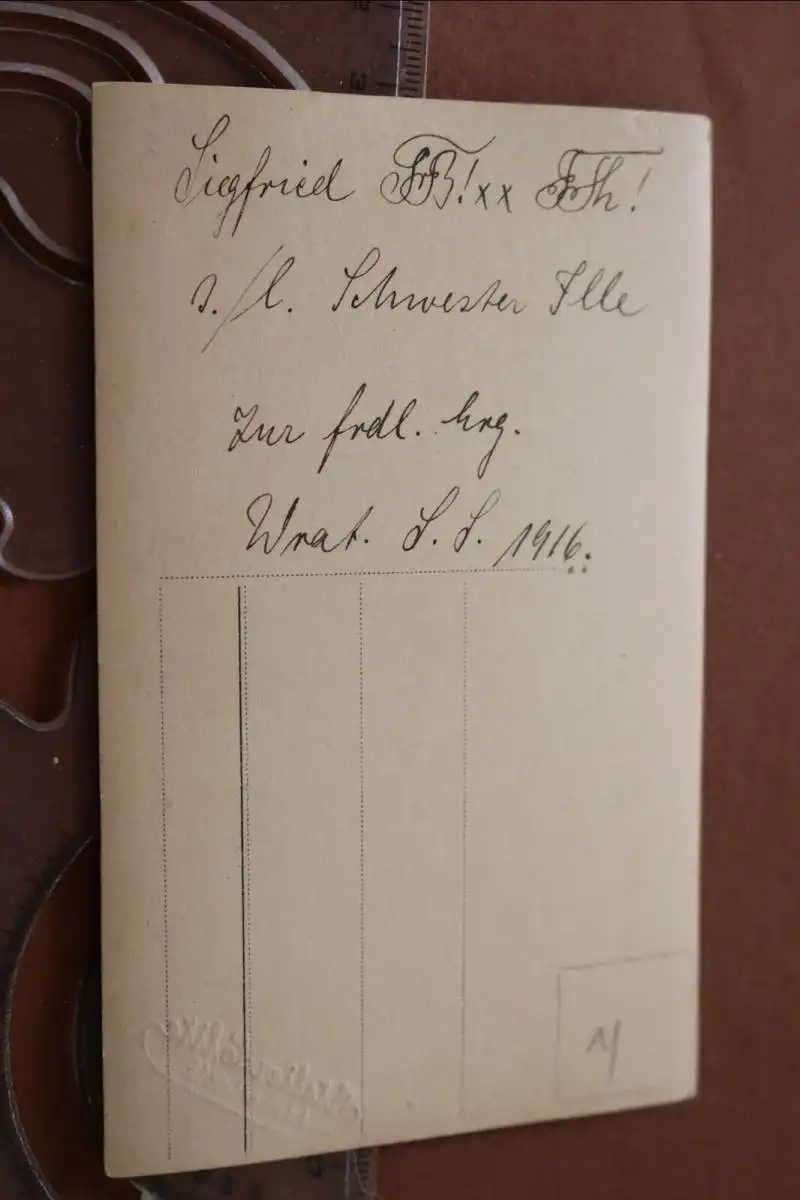 Siegfried FB! xx FTh!
s./l. Schwester Ille
zur frdl. Erg.
Wrat. S. S. 1916.